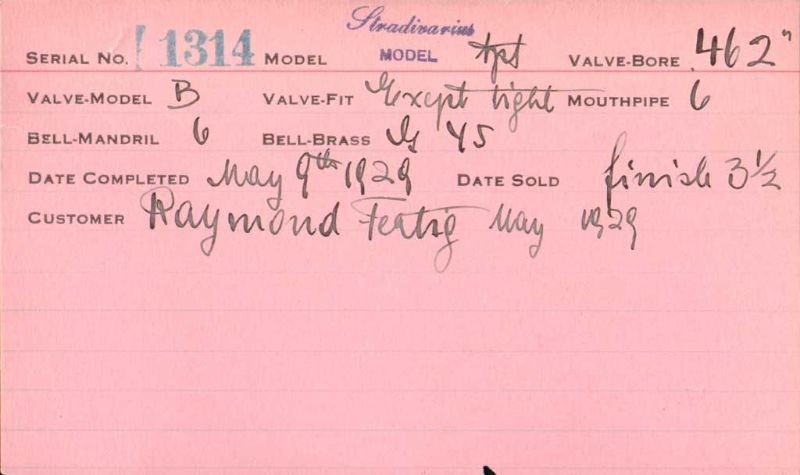 Stradivarius
SERIAL NO. 1314 MODEL MODEL tpt VALVE-BORE .462"
VALVE-MODEL B VALVE-FIT Except tight MOUTHPIPE 6
BELL-MANDRIL 6 BELL-BRASS 45
DATE COMPLETED May 9th 1929 DATE SOLD finish 3 1/2
CUSTOMER Raymond Fertig May 1929